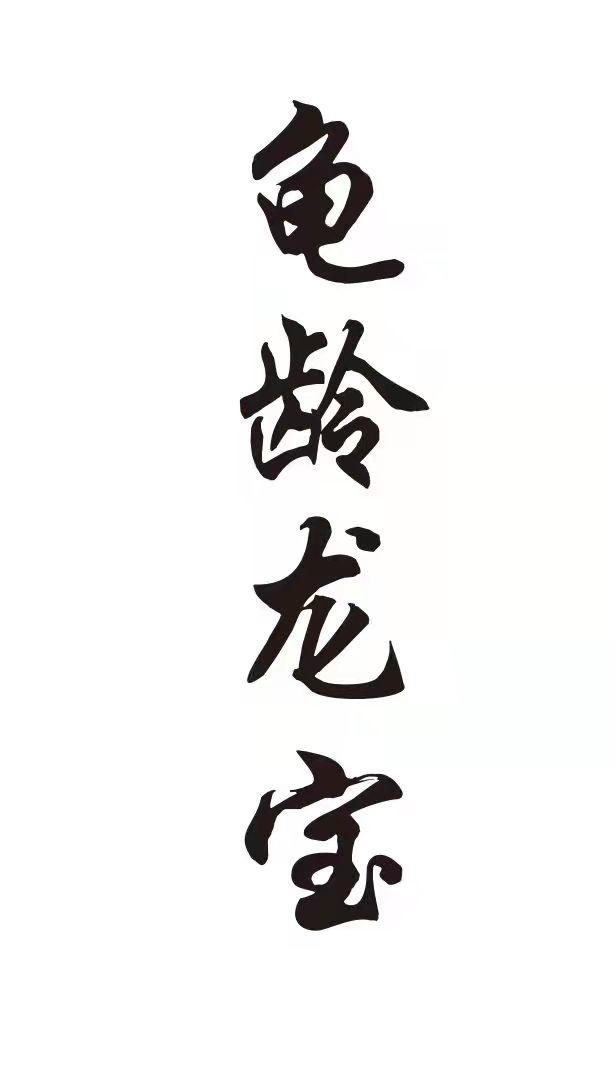 龟龄龙宝